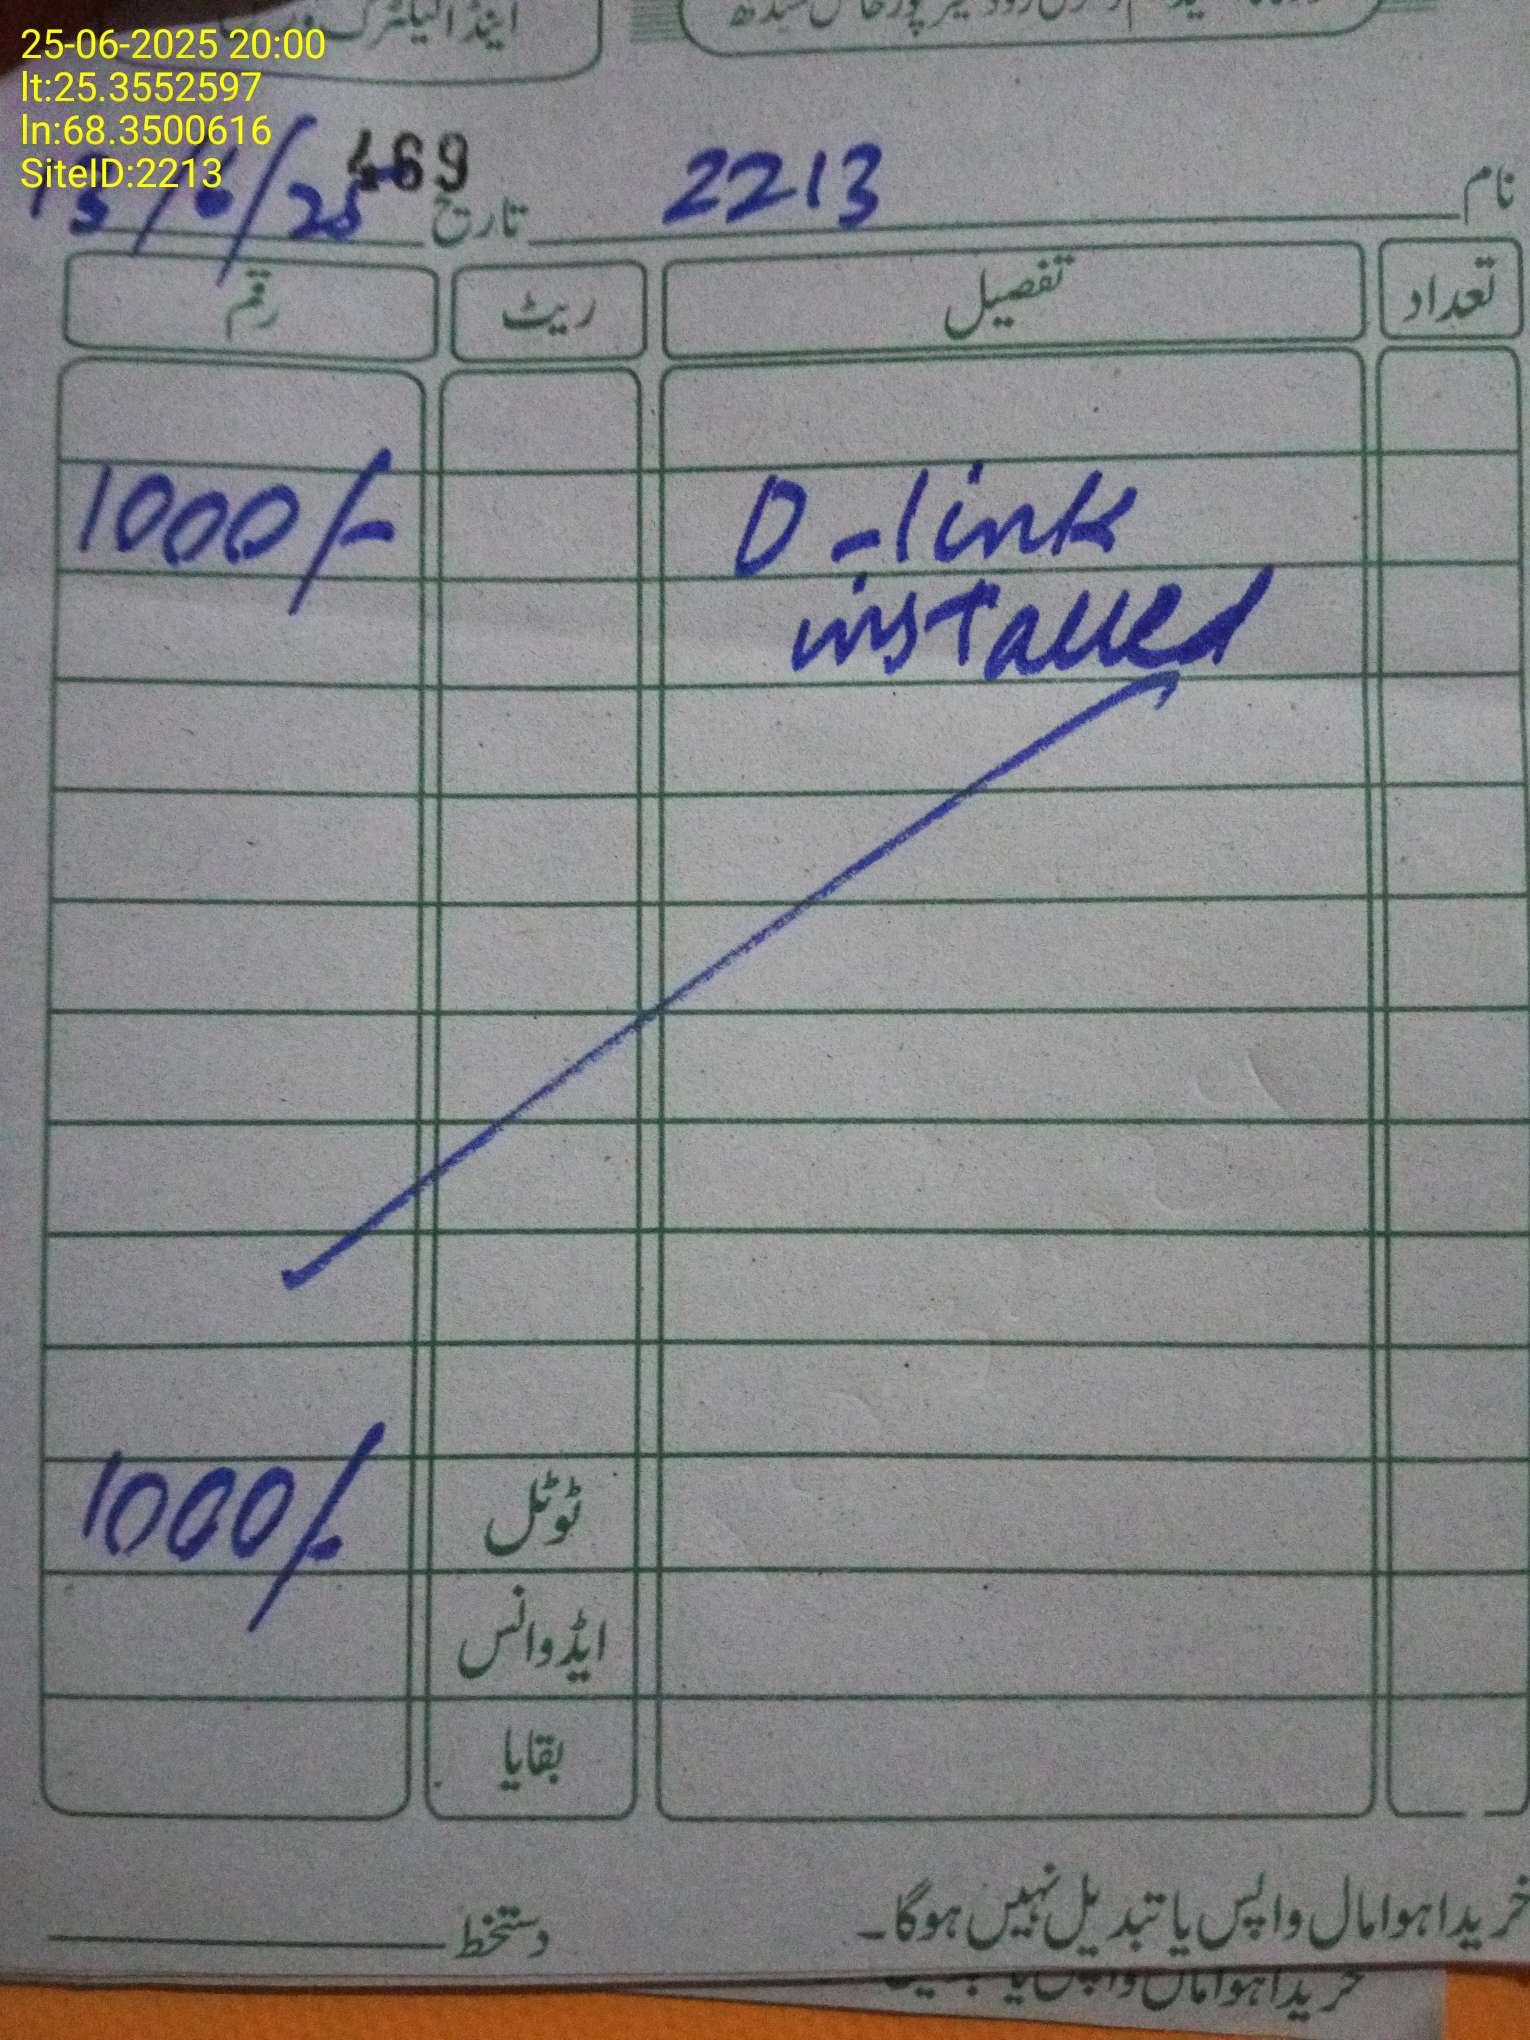 25-06-2025 20:00
lt:25.3552597
ln:68.3500616
SiteID:2213
اینڈ الیکٹرک
469
نام 2213 تاریخ 13/6/25
تعداد تفصیل ریٹ رقم
D-link 1000/-
installed
ٹوٹل 1000/-
ایڈوانس
بقایا
خریدا ہوا مال واپس یا تبدیل نہیں ہوگا۔
دستخط
خریدا ہوا مال واپس یا